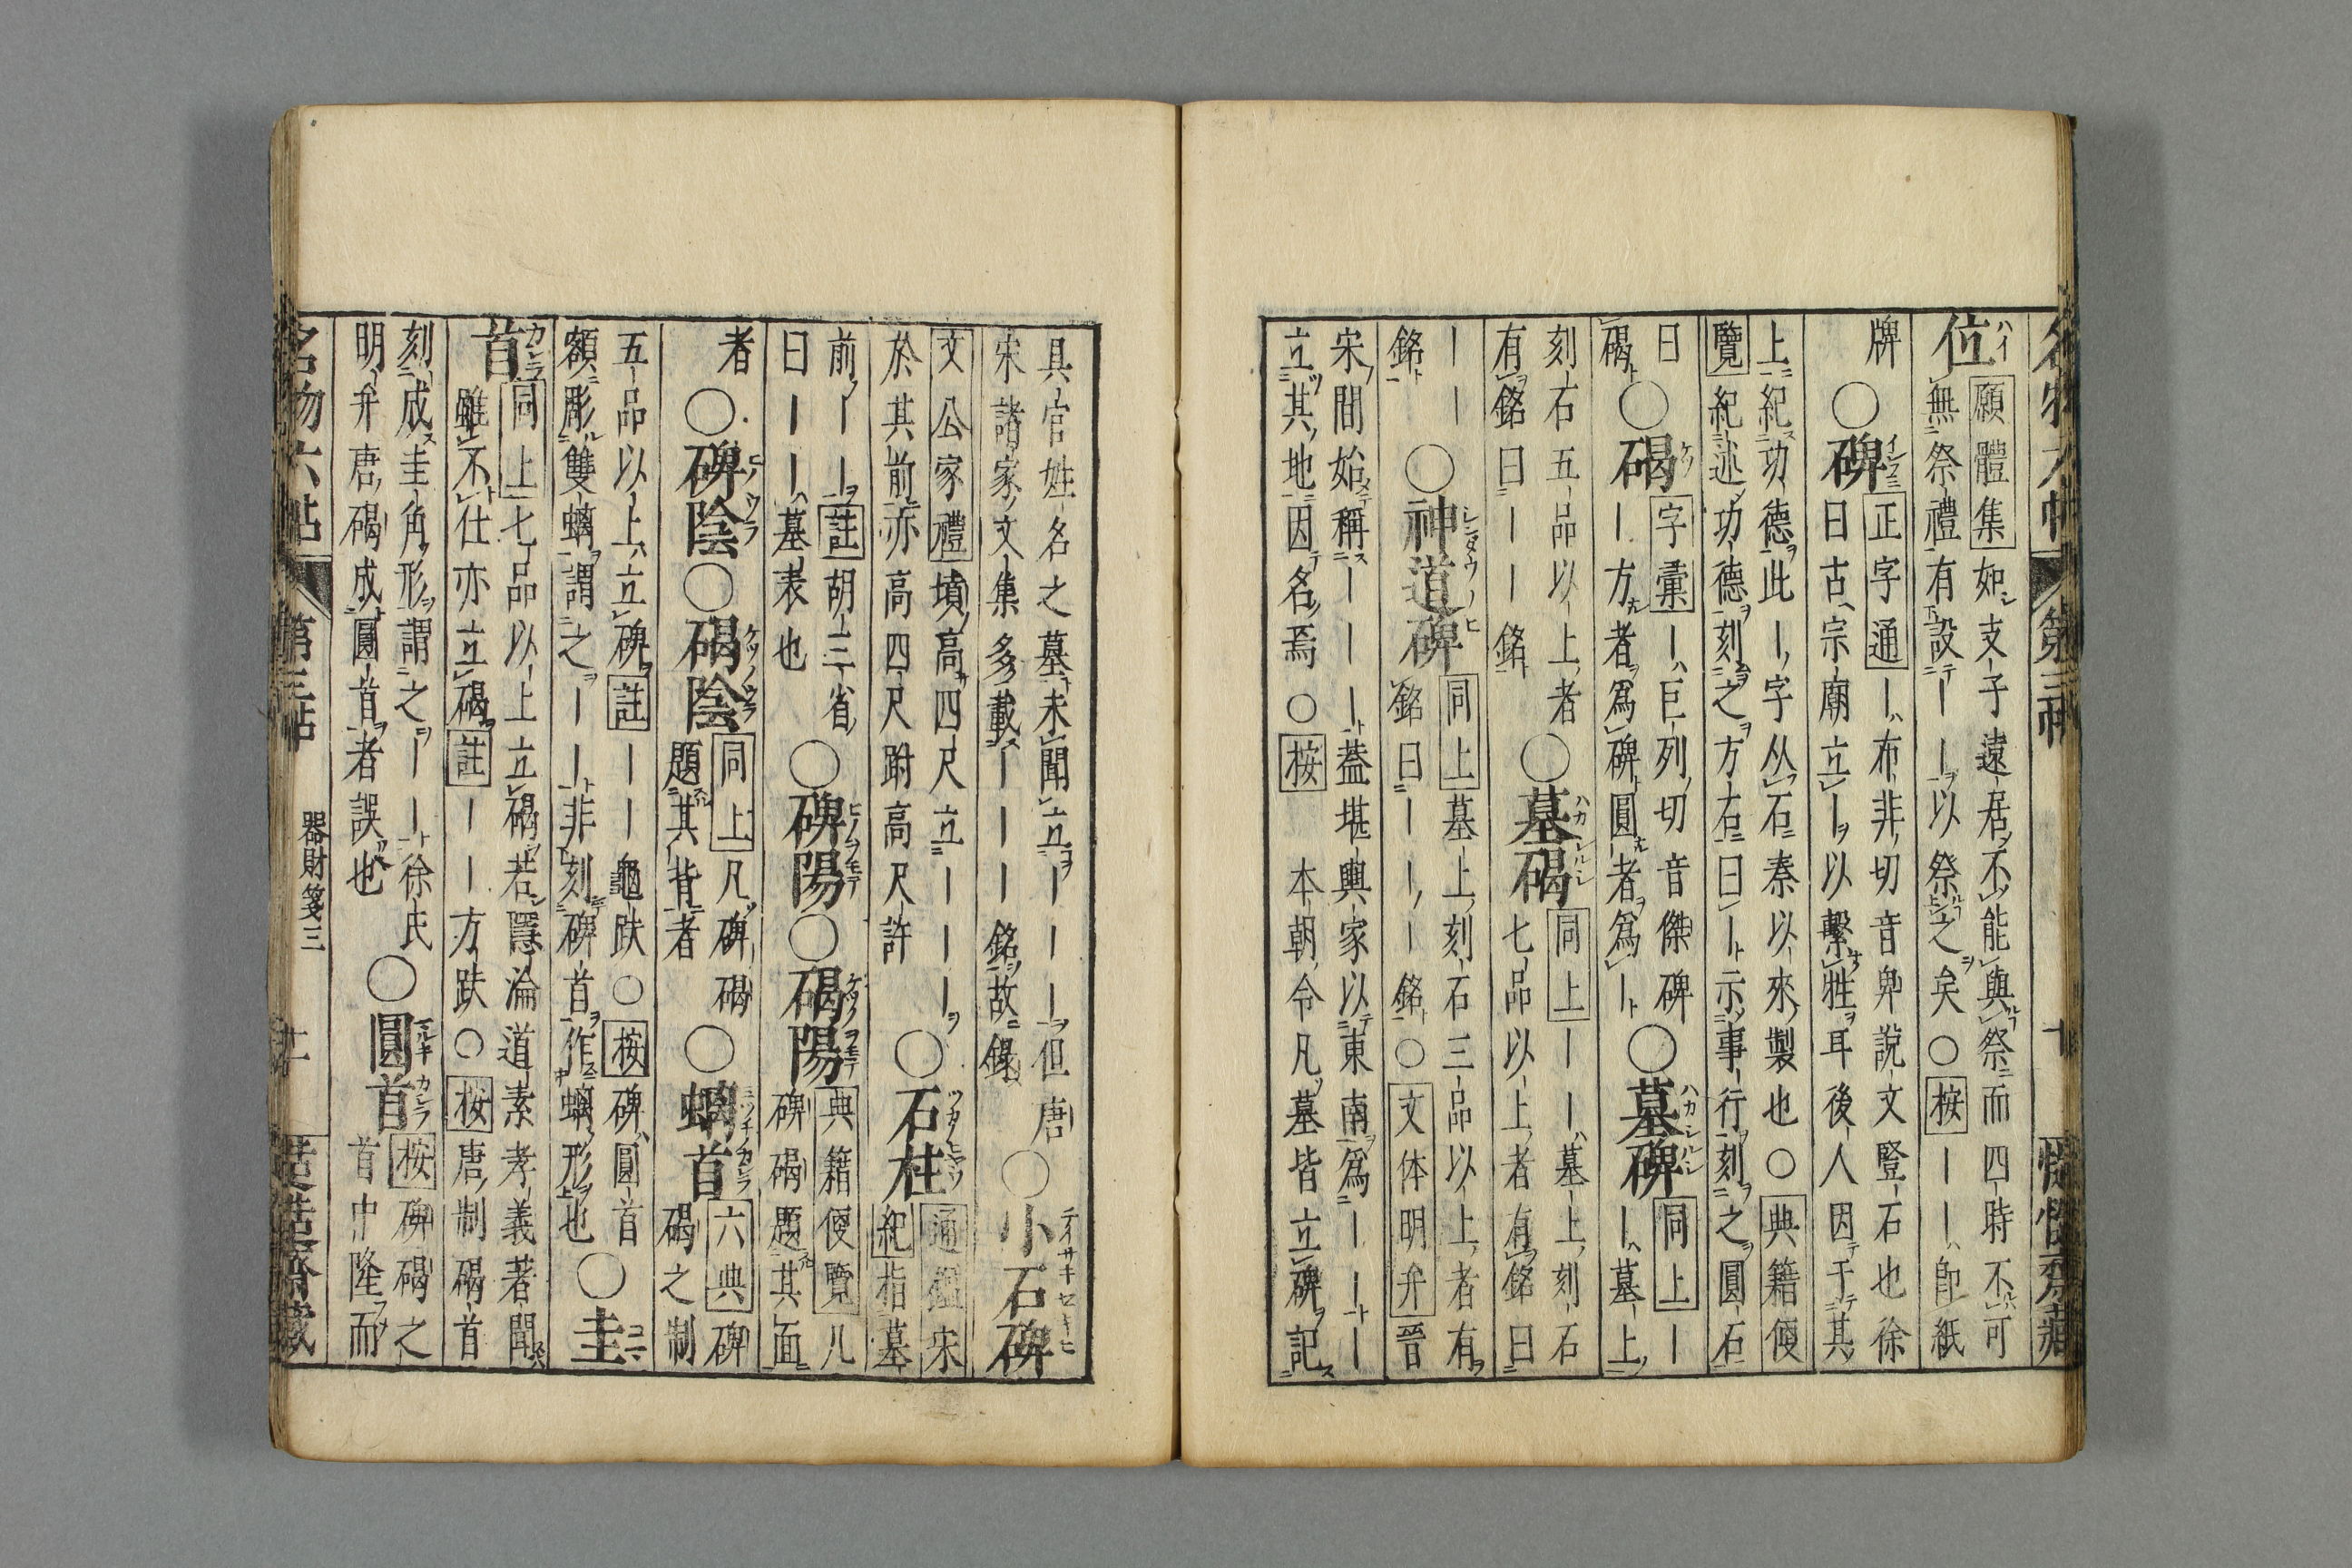 名物六帖 第三帖 十
位ハイ 願體集 如支子遠居不能與祭而四時不可
無祭禮有設――以祭之矣○按――即紙
牌 ○碑イシブミ 正字通 ―布非切音卑說文豎石也徐
曰古宗廟立―以繫牲耳後人因于其
上紀功德此―字从石秦以來製也○典籍便
覽 紀述功德刻之方石曰―示事行刻之圓石
曰
碣 ○碣ケツ 字彙 ―巨列切音傑碑
―方者爲碑圓者爲― ○墓碑ハカシルシ 同上 ―
―墓上
刻石五品以上者
有銘曰――銘 ○墓碣ハカシルシ 同上 ――墓上刻石
七品以上者有銘曰
――
銘 ○神道碑シンダウノヒ 同上 墓上刻石三品以上者有
銘曰―――銘○文体明弁 晉
宋間始稱―――蓋堪輿家以東南爲―――
立其地因名焉○按 本朝令凡墓皆立碑記
具官姓名之墓未聞立―――但唐
宋諸家文集多載―――銘故錄 ○小石碑チイサキセキヒ
文公家禮 墳高四尺立―――
於其前亦高四尺跗高尺許 ○石柱 通鑑宋
紀 指墓
前――註胡三省
曰――墓表也 ○碑陽ヒノヲモテ ○碣陽ケツノヲモテ 典籍便覽 凡
碑碣題其面
者 ○碑陰ヒノウラ ○碣陰ケツノウラ 同上 凡碑碣
題其背者 ○螭首 六典 碑
碣之制
五品以上立碑註――龜趺○按碑圓首
額彫雙螭謂之――非刻碑首作螭形也 ○圭
首カシラ 同上 七品以上立碣若隱淪道素孝義著聞
雖不仕亦立碣註――方趺○按唐制碣首
刻成圭角形謂之――徐氏
明弁唐碣成圓首者誤也 ○圓首マルキカシラ 按碑碣之
首中隆而
名物六帖 第三帖 器財箋三 十一